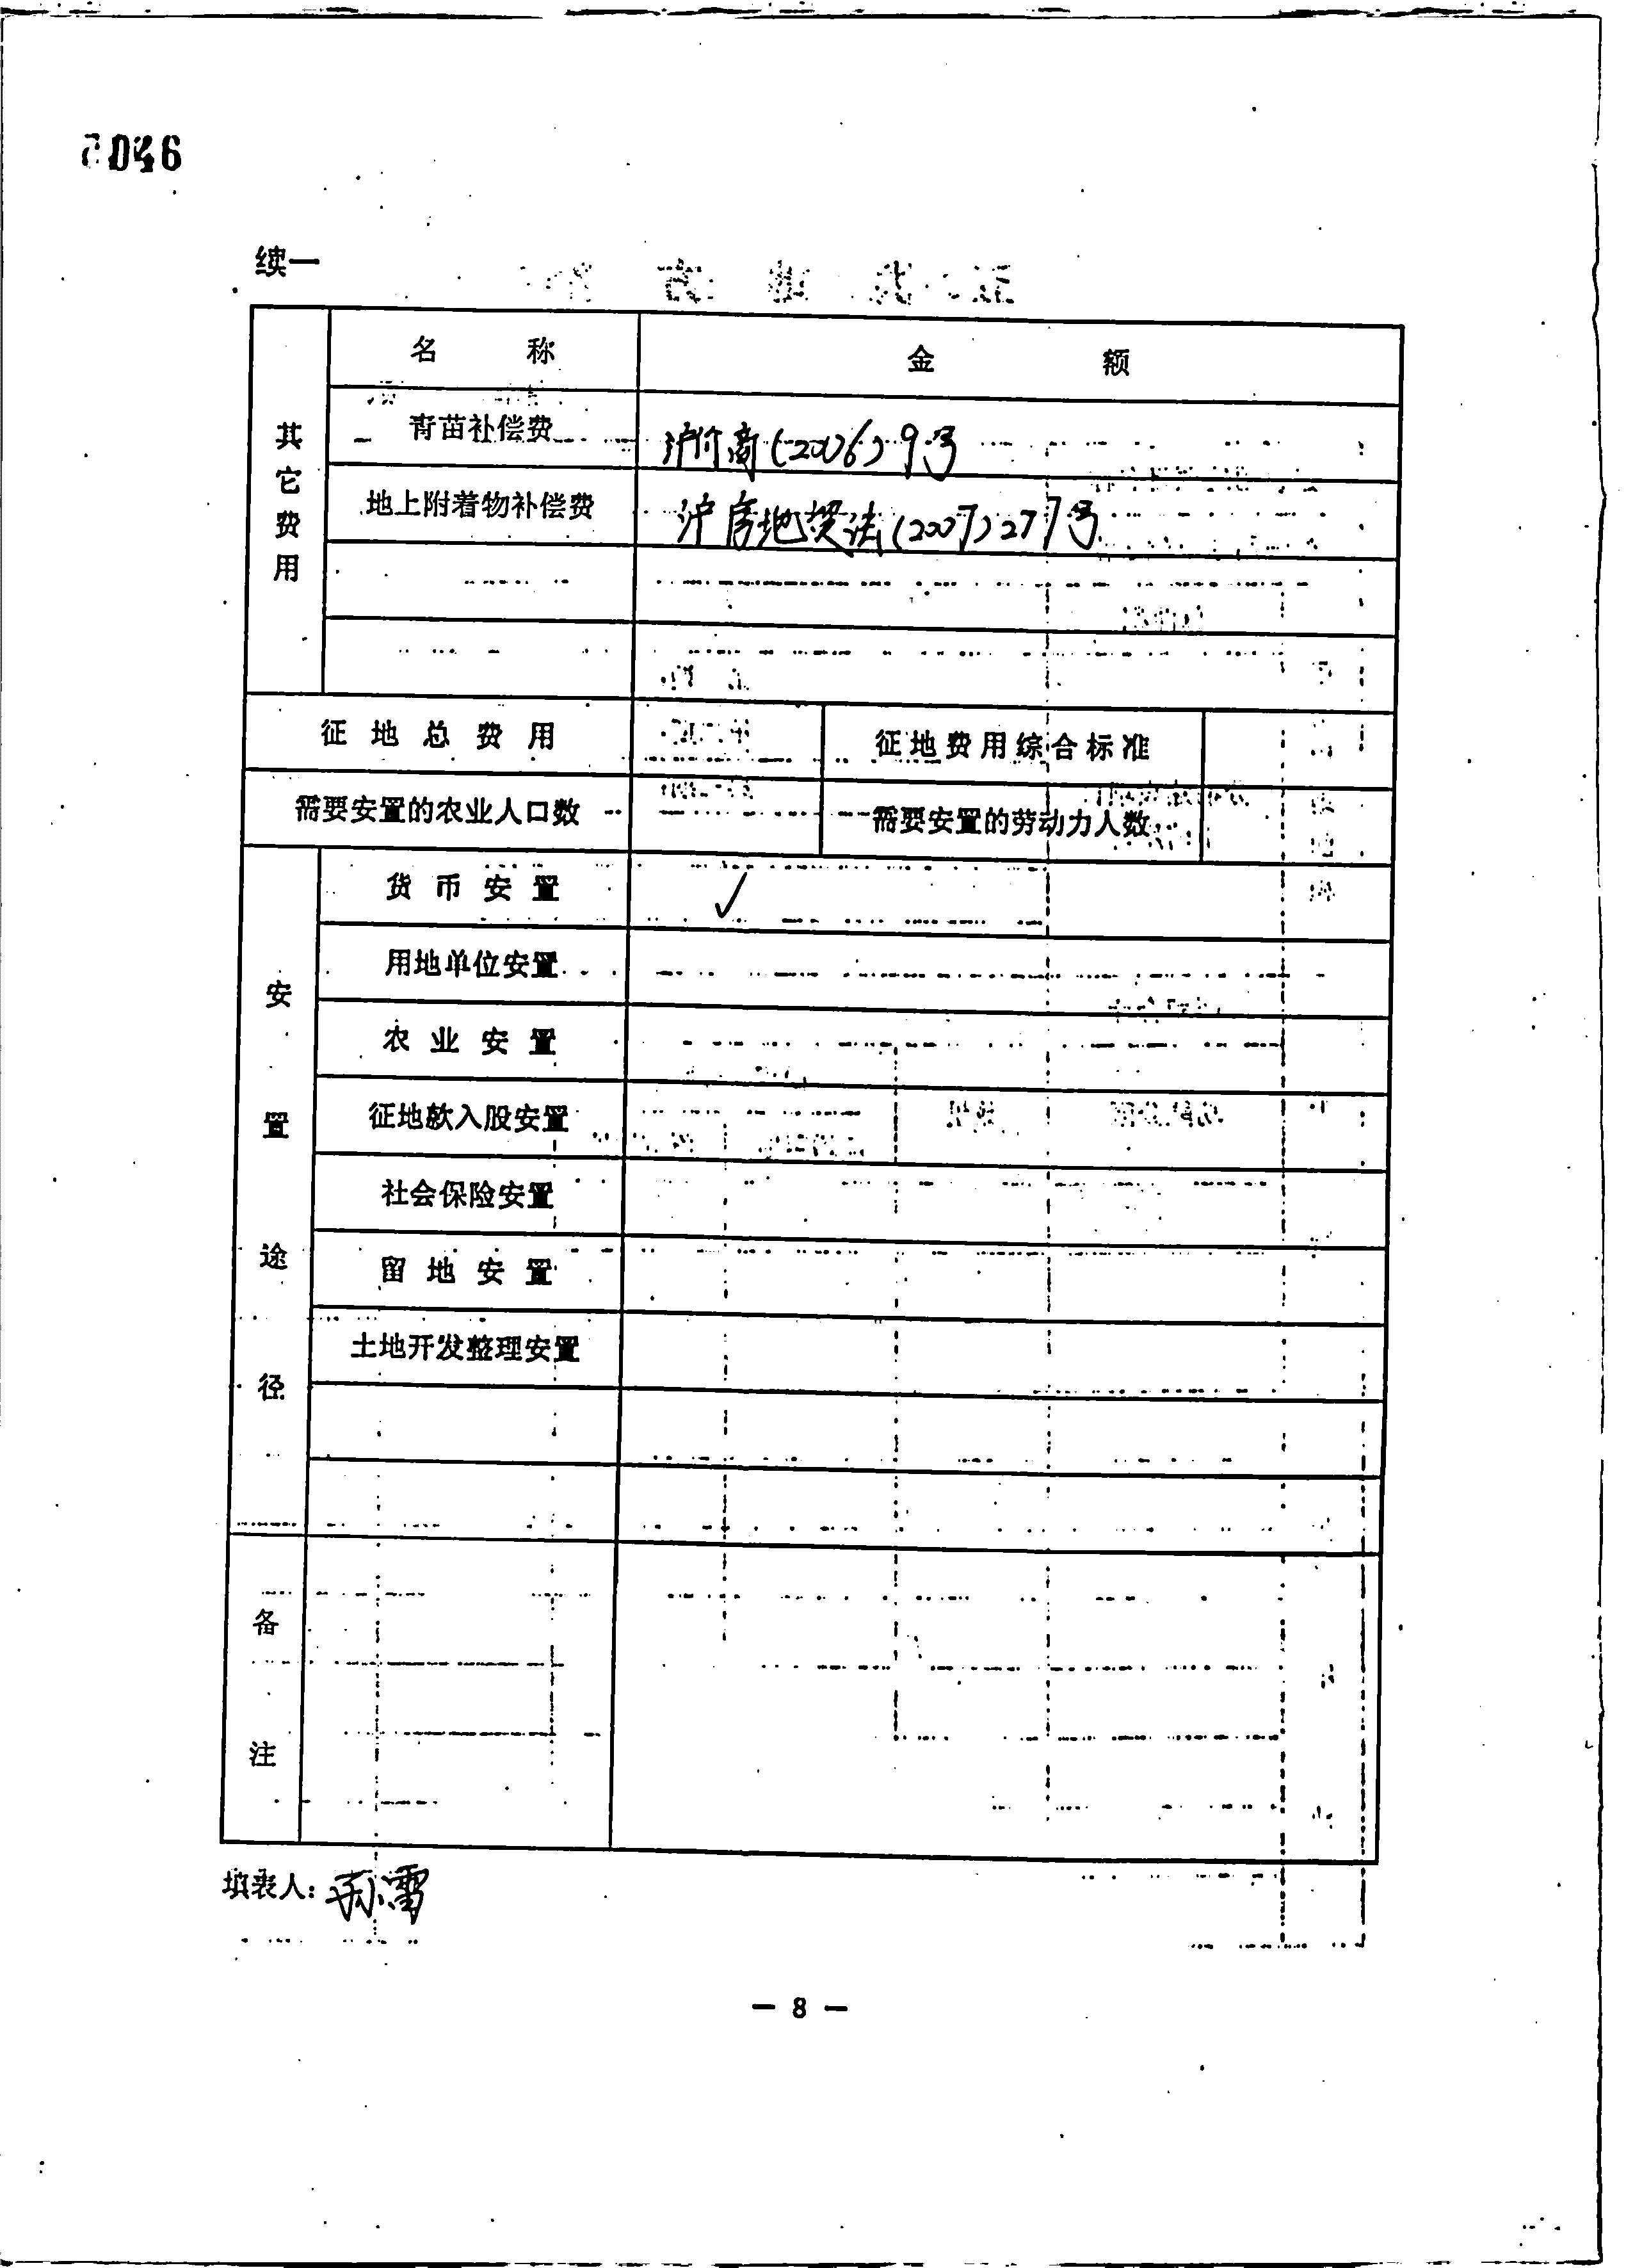 续一
名 称 金 额
其它费用
青苗补偿费 沪价商(2006)9号
地上附着物补偿费 沪房地 法(2007)277号
征地总费用 征地费用综合标准
需要安置的农业人口数 需要安置的劳动力人数
安置途径
货币安置 ✓
用地单位安置
农业安置
征地款入股安置
社会保险安置
留地安置
土地开发整理安置
备注
填表人: 孙雷
— 8 —